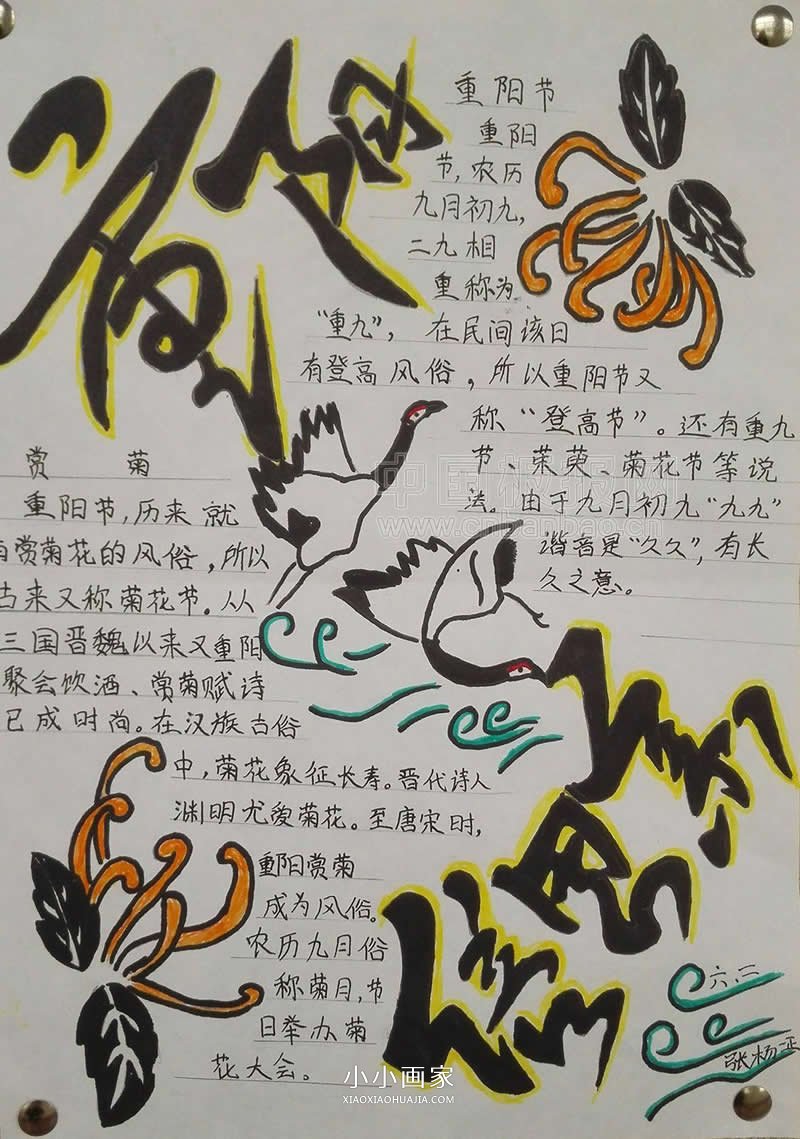 重阳
重阳节
重阳
节,农历
九月初九,
二九相
重称为
“重九”, 在民间该日
有登高风俗,所以重阳节又
称“登高节”。还有重九
节、茱萸、菊花节等说
法。由于九月初九“九九”
谐音是“久久”,有长
久之意。
赏 菊
重阳节,历来就
有赏菊花的风俗,所以
古来又称菊花节。从
三国晋魏以来又重阳
聚会饮酒、赏菊赋诗
已成时尚。在汉族古俗
中,菊花象征长寿。晋代诗人
渊明尤爱菊花。至唐宋时,
重阳赏菊
成为风俗。
农历九月俗
称菊月,节
日举办菊
花大会。
六.二
张杨
中国板报网
www.cnbanbao.cn
小小画家
XIAOXIAOHUAJIA.COM